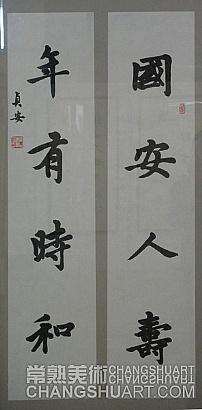 國安人壽
年有時和
貞安
常熟美術 CHANGSHUART.COM
CHANGSHUART.COM